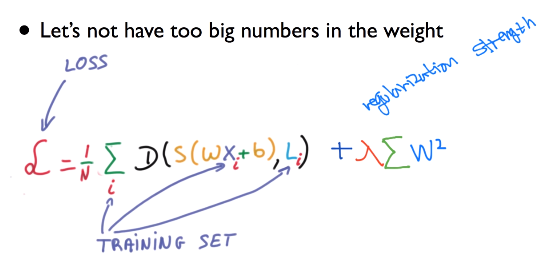 • Let's not have too big numbers in the weight
LOSS
regularization strength
ℒ = 1/N Σ_i D(S(WX_i+b), L_i) + λ Σ W²
TRAINING SET